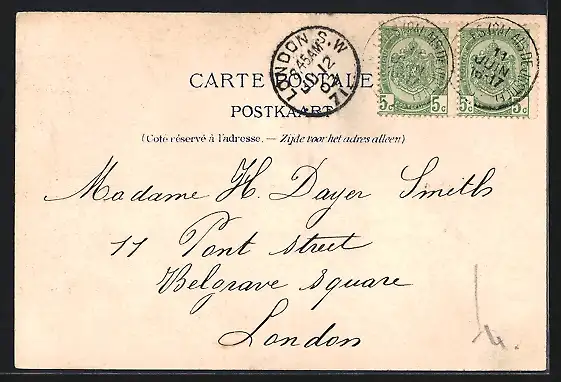 LONDON S.W
45AM
12
71
CARTE POSTALE
POSTKAART
(Coté réservé à l'adresse. — Zijde voor het adres alleen)
5c 5c 5c 5c
11
JUIN
16-17
Madame H. Dayer Smith
11 Pont Street
Belgrave Square
London
4.